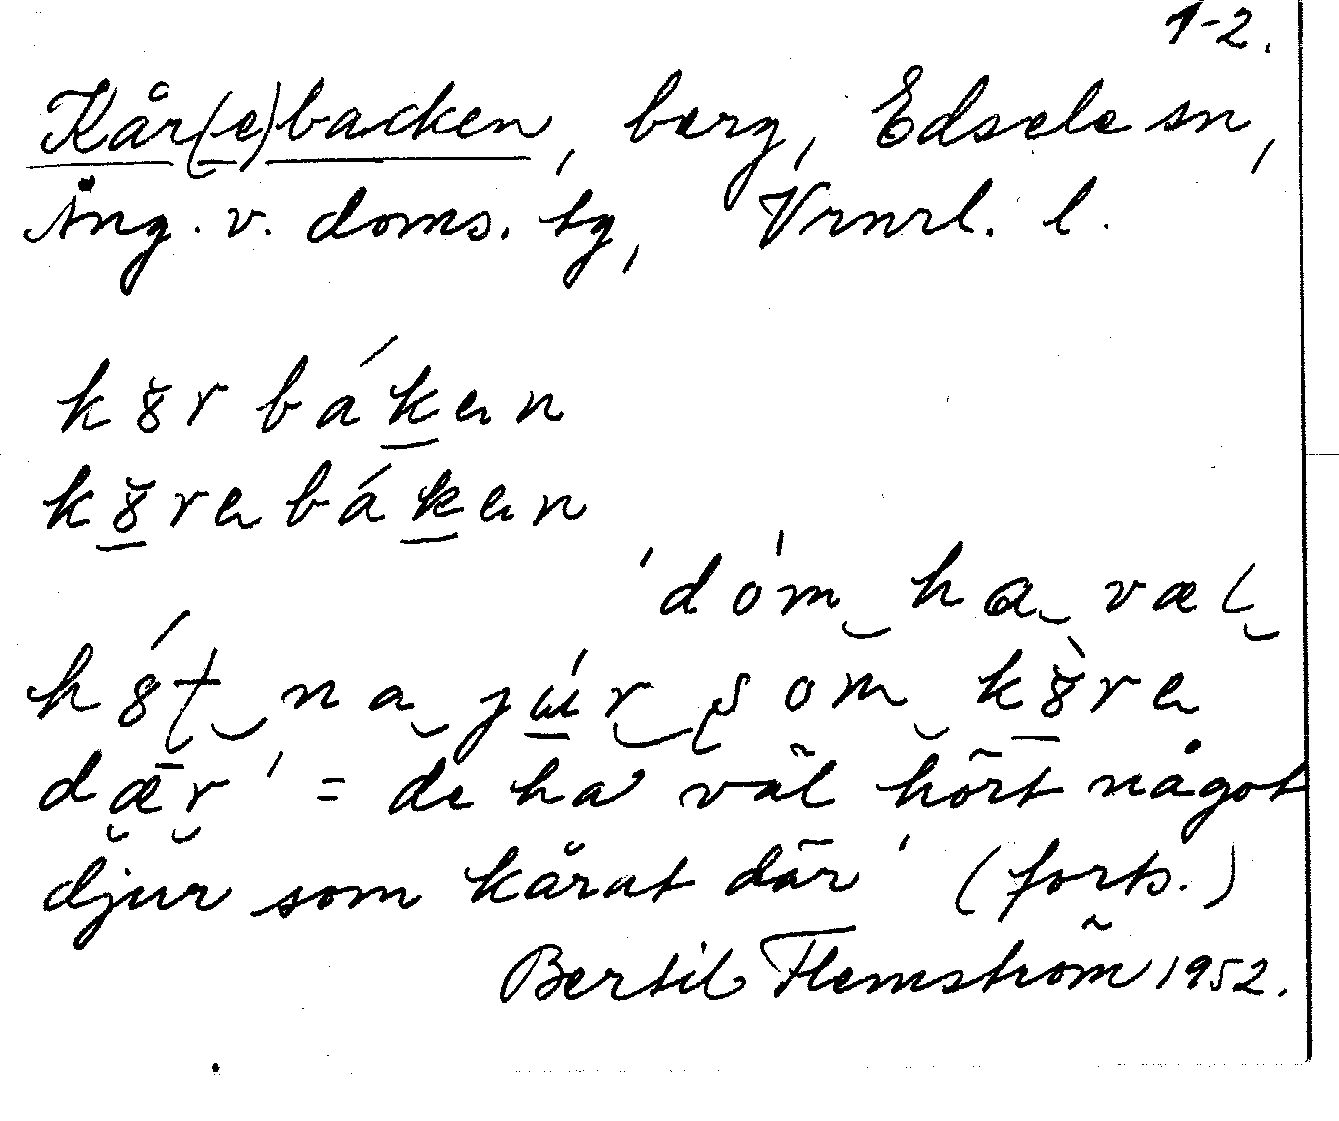 1-2.
Kår(e)backen, berg, Edsele sn,
Ång. v. doms. tg, Vrnrl. l.
k8rbákən
k8rəbákən
'dóm ha væl
h8́t na júr som k8̀rə
dǣr' = de ha väl hört något
djur som kårat där' (forts.)
Bertil Flemström 1952.